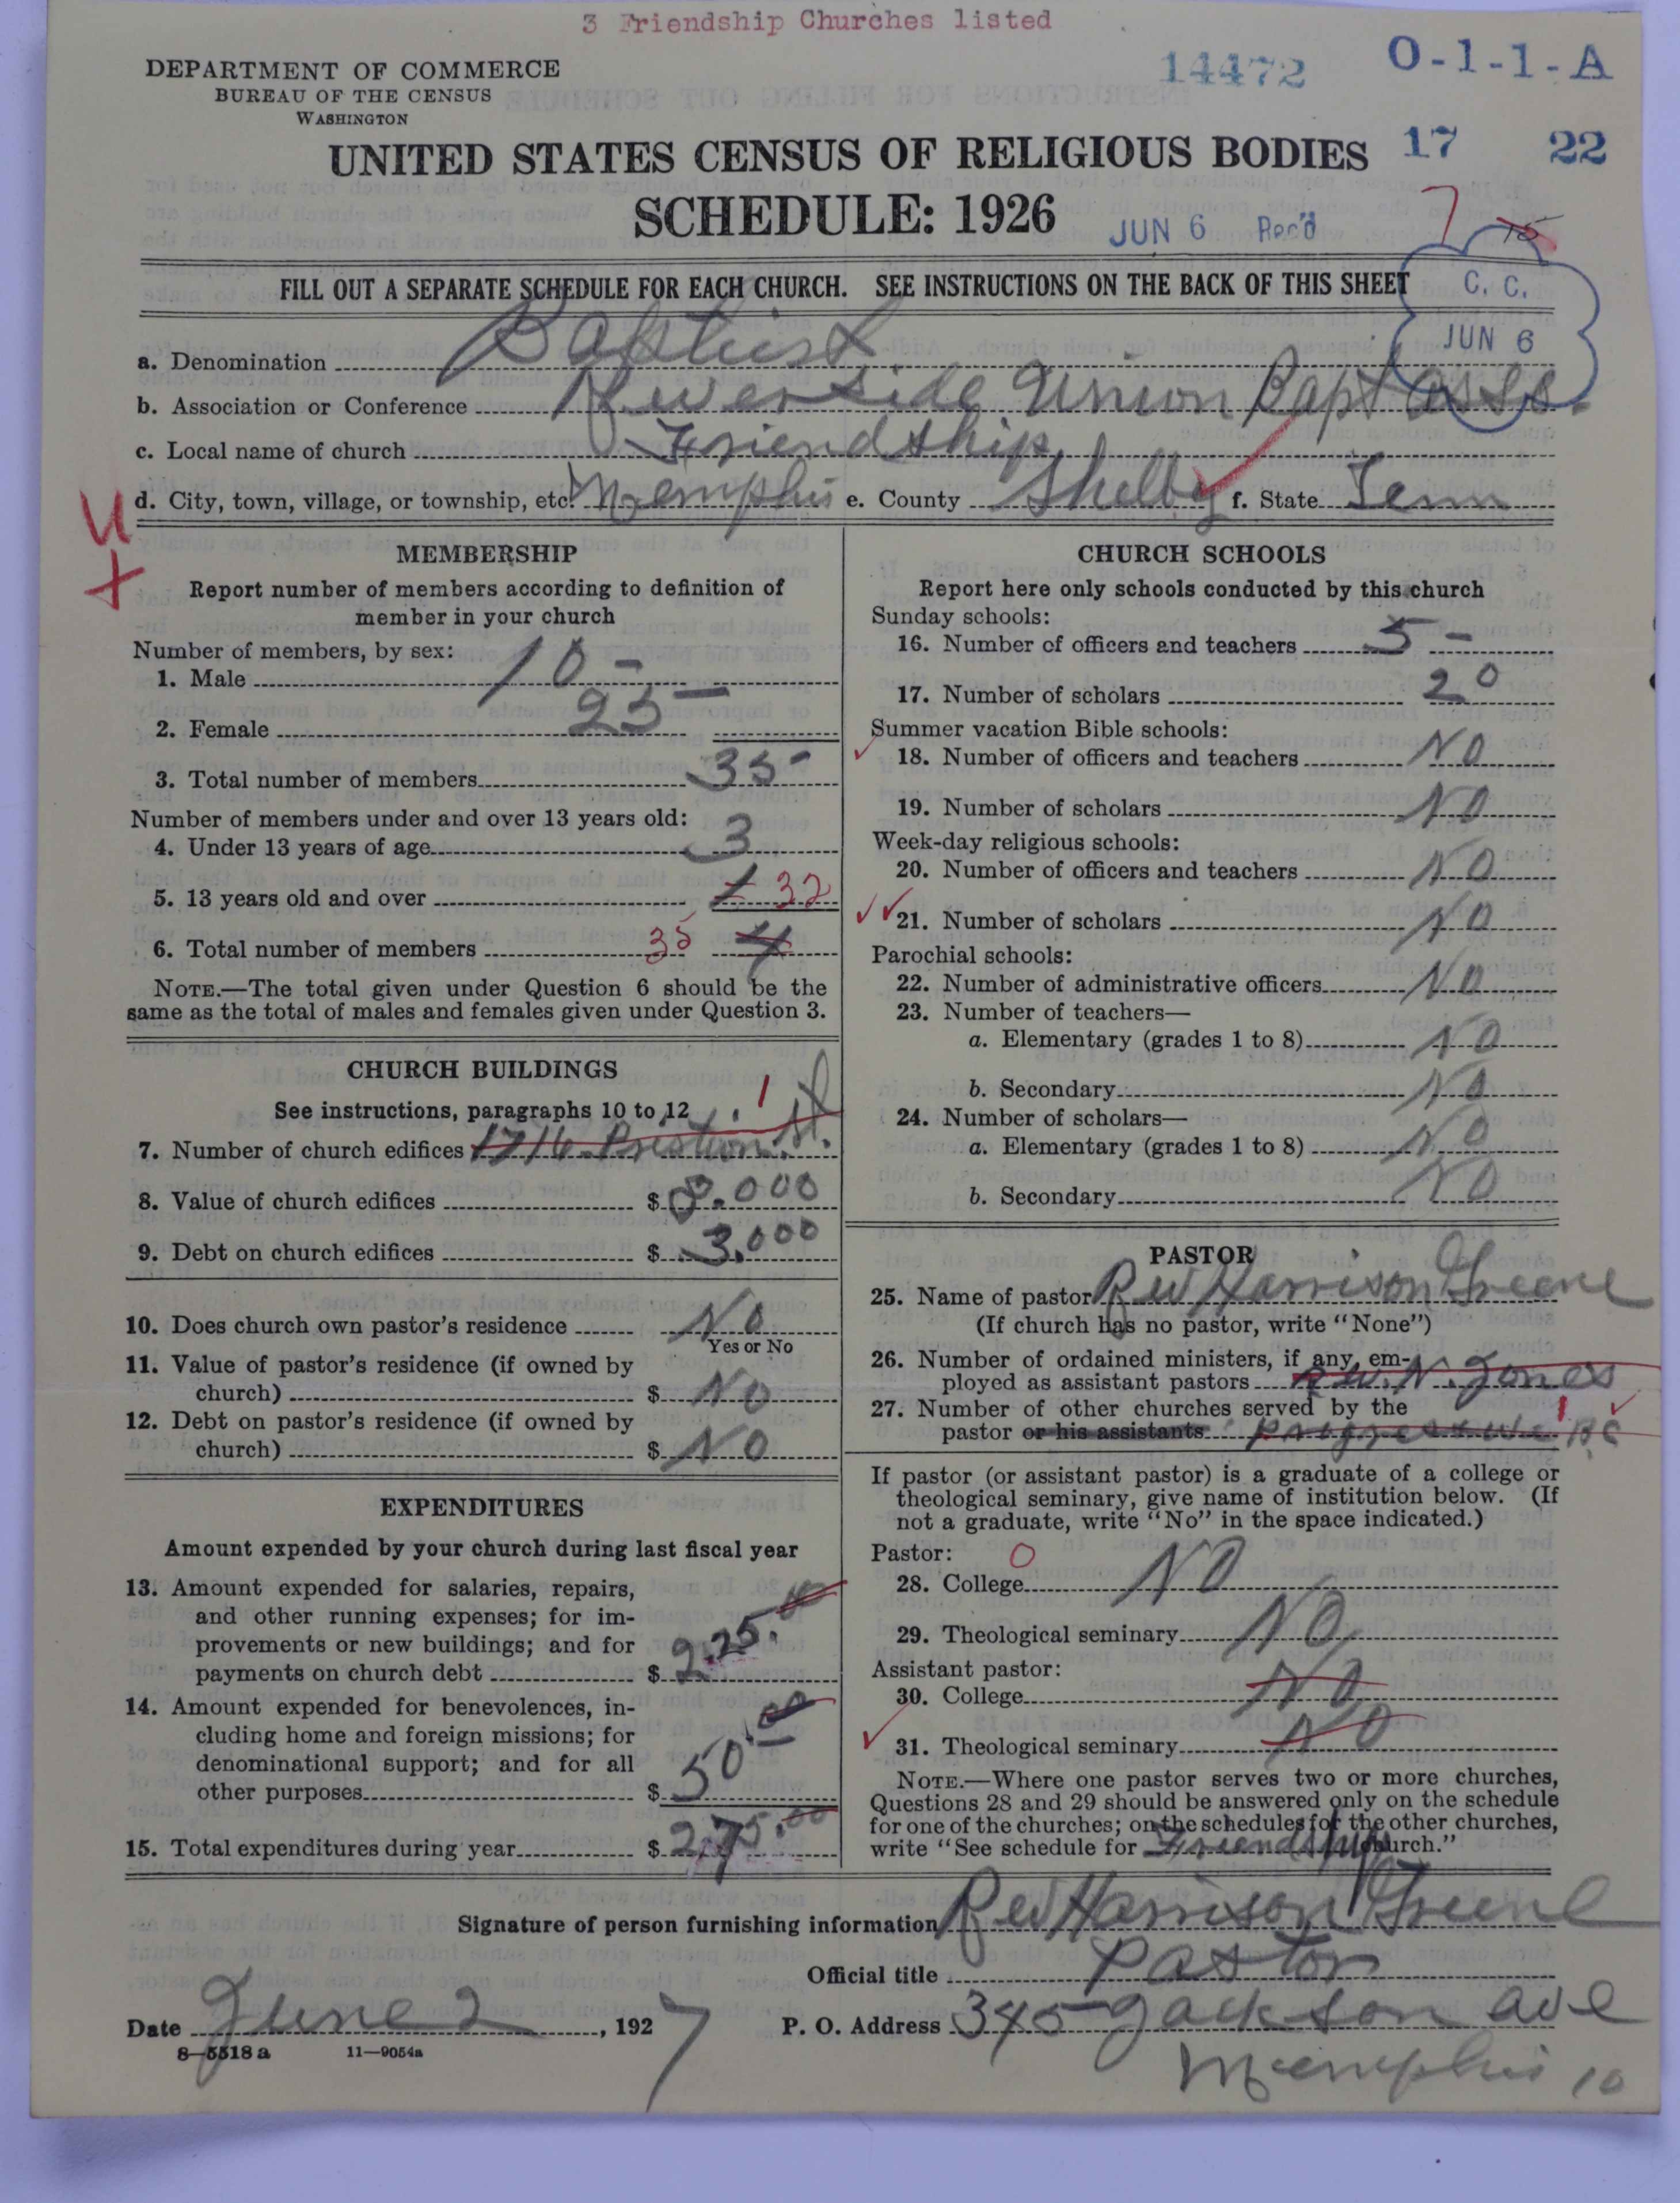 3 Friendship Churches listed
DEPARTMENT OF COMMERCE
BUREAU OF THE CENSUS
WASHINGTON
14472 O-1-1-A
UNITED STATES CENSUS OF RELIGIOUS BODIES 17 22
SCHEDULE: 1926 JUN 6 Rec'd 7 15
FILL OUT A SEPARATE SCHEDULE FOR EACH CHURCH. SEE INSTRUCTIONS ON THE BACK OF THIS SHEET
C. C.
JUN 6
a. Denomination Baptist
b. Association or Conference Riverside Union Bapt Ass.
c. Local name of church Friendship
d. City, town, village, or township, etc. Memphis e. County Shelby f. State Tenn
U
+
MEMBERSHIP
Report number of members according to definition of
member in your church
Number of members, by sex:
1. Male 10 -
2. Female 25 -
3. Total number of members 35 -
Number of members under and over 13 years old:
4. Under 13 years of age 3
5. 13 years old and over 1 32
6. Total number of members 35 4
NOTE.—The total given under Question 6 should be the
same as the total of males and females given under Question 3.
CHURCH BUILDINGS
See instructions, paragraphs 10 to 12 1
7. Number of church edifices 1716 Preston St.
8. Value of church edifices $ 8.000
9. Debt on church edifices $ 3.000
10. Does church own pastor's residence No
Yes or No
11. Value of pastor's residence (if owned by
church) $ No
12. Debt on pastor's residence (if owned by
church) $ No
EXPENDITURES
Amount expended by your church during last fiscal year
13. Amount expended for salaries, repairs,
and other running expenses; for im-
provements or new buildings; and for
payments on church debt $ 225.00
14. Amount expended for benevolences, in-
cluding home and foreign missions; for
denominational support; and for all
other purposes $ 50.00
15. Total expenditures during year $ 275.00
CHURCH SCHOOLS
Report here only schools conducted by this church
Sunday schools:
16. Number of officers and teachers 5 -
17. Number of scholars 20
Summer vacation Bible schools:
18. Number of officers and teachers NO
19. Number of scholars NO
Week-day religious schools:
20. Number of officers and teachers NO
21. Number of scholars NO
Parochial schools:
22. Number of administrative officers NO
23. Number of teachers—
a. Elementary (grades 1 to 8) NO
b. Secondary NO
24. Number of scholars—
a. Elementary (grades 1 to 8) NO
b. Secondary NO
PASTOR
25. Name of pastor Rev Harrison Greene
(If church has no pastor, write "None")
26. Number of ordained ministers, if any, em-
ployed as assistant pastors Rev. N. Jones
27. Number of other churches served by the 1
pastor or his assistants Progressive B C
If pastor (or assistant pastor) is a graduate of a college or
theological seminary, give name of institution below. (If
not a graduate, write "No" in the space indicated.)
Pastor: 0
28. College NO
29. Theological seminary NO
Assistant pastor:
30. College NO
31. Theological seminary NO
NOTE.—Where one pastor serves two or more churches,
Questions 28 and 29 should be answered only on the schedule
for one of the churches; on the schedules for the other churches,
write "See schedule for Friendship church."
Signature of person furnishing information Rev Harrison Greene
Official title Pastor
Date June 2, 1927 P. O. Address 345 Jackson ave
8—5518a 11—9054a
Memphis 10